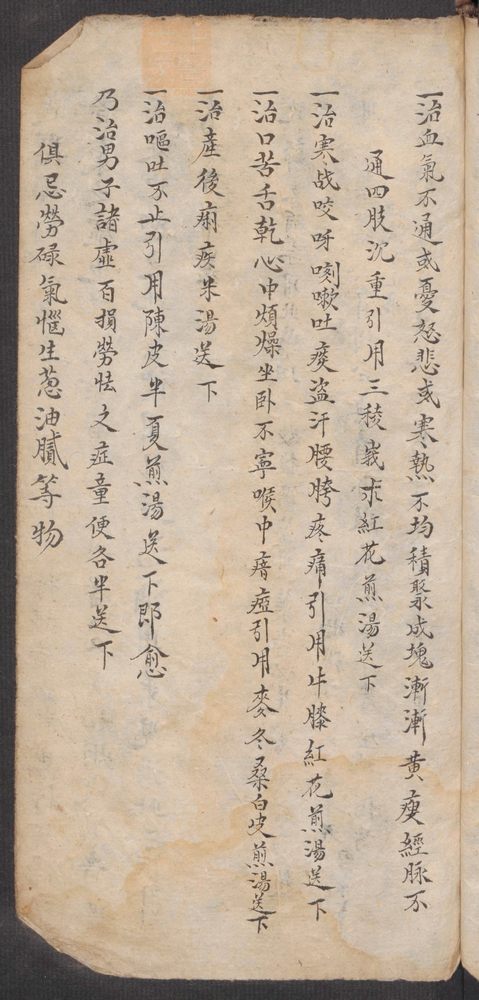 一治血氣不通或憂怒悲或寒熱不均積聚成塊漸漸黄瘦經脉不
通四肢沉重引用三稜莪朮紅花煎湯送下
一治寒战咬呀咳嗽吐痰盗汗腰胯疼痛引用牛膝紅花煎湯送下
一治口苦舌乾心中煩燥坐卧不寧喉中瘖瘂引用麥冬桑白皮煎湯送下
一治産後痢疾米湯送下
一治嘔吐不止引用陳皮半夏煎湯送下即愈
乃治男子諸虚百損勞怯之症童便各半送下
俱忌勞碌氣惱生葱油膩等物